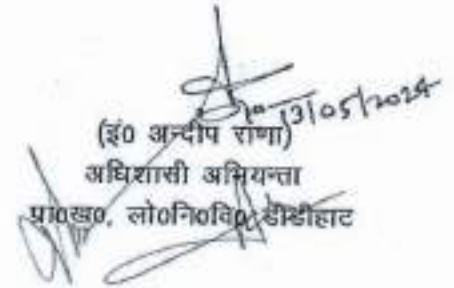 13/05/2024
(इं0 अन्दीप राणा)
अधिशासी अभियन्ता
प्रा0ख0, लो0नि0वि0, डीडीहाट